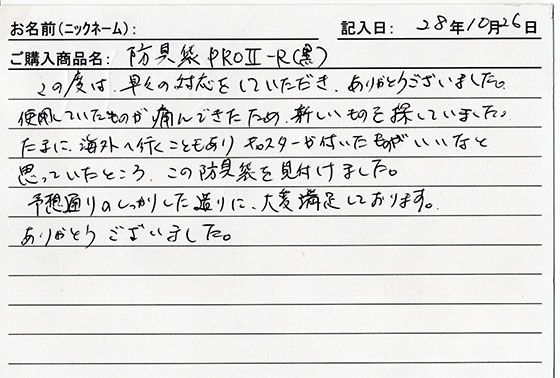 お名前(ニックネーム): 記入日: 28年10月26日
ご購入商品名: 防具袋PROⅡ-R(黒)
この度は、早々の対応をしていただき、ありがとうございました。
使用していたものが痛んできたため、新しいものを探していました。
たまに、海外へ行くこともありキャスターが付いたものがいいなと
思っていたところ、この防具袋を見付けました。
予想通りのしっかりした造りに、大変満足しております。
ありがとうございました。